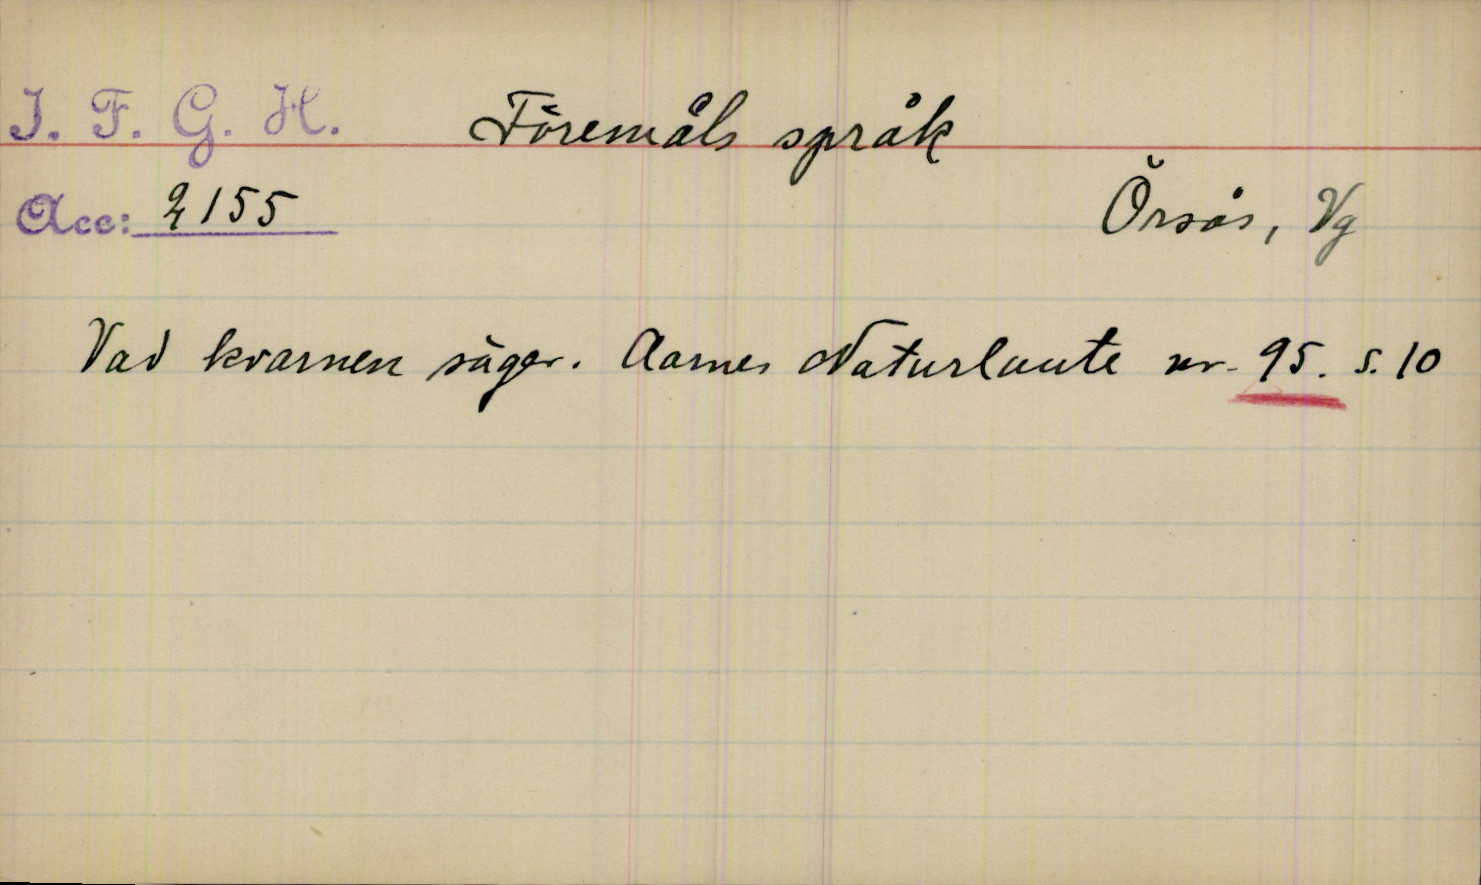 I. F. G. H. Föremåls språk
Acc: 2155 Örsås, Vg
Vad kvarnen säger. Aarnes Naturlaute nr. 95. s. 10